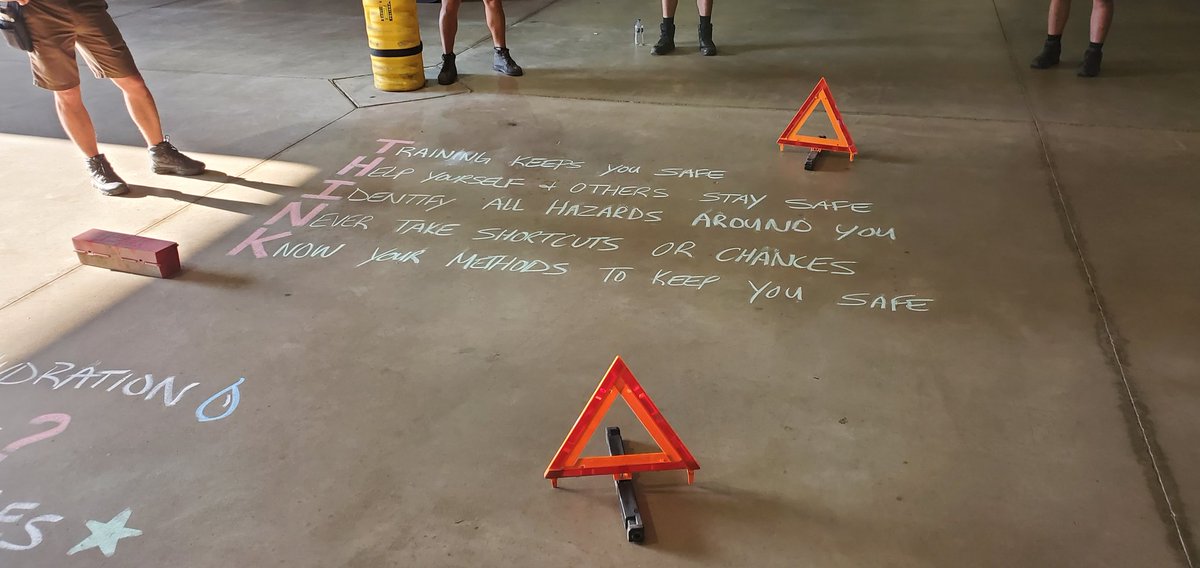 TRAINING KEEPS YOU SAFE
HELP YOURSELF + OTHERS STAY SAFE
IDENTIFY ALL HAZARDS AROUND YOU
NEVER TAKE SHORTCUTS OR CHANCES
KNOW YOUR METHODS TO KEEP YOU SAFE
DRATION
?
ES